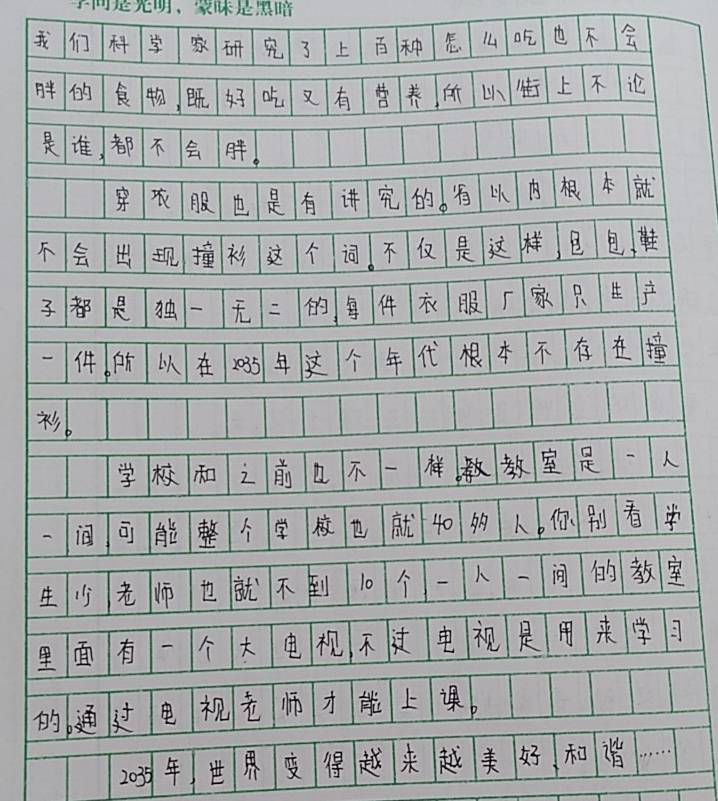 学问是光明，蒙昧是黑暗
我们科学家研究了上百种怎么吃也不会
胖的食物，既好吃又有营养，所以街上不论
是谁，都不会胖。
穿衣服也是有讲究的。省以内根本就
不会出现撞衫这个词。不仅是这样，包包，鞋
子都是独一无二的，每件衣服厂家只生产
一件。所以在2035年这个年代根本不存在撞
衫。
学校和之前也不一样。教室是一人
一间，可能整个学校也就40多人。你别看学
生少，老师也就不到10个，一人一间的教室
里面有一个大电视，不过电视是用来学习
的。通过电视老师才能上课。
2035年，世界变得越来越美好，和谐……